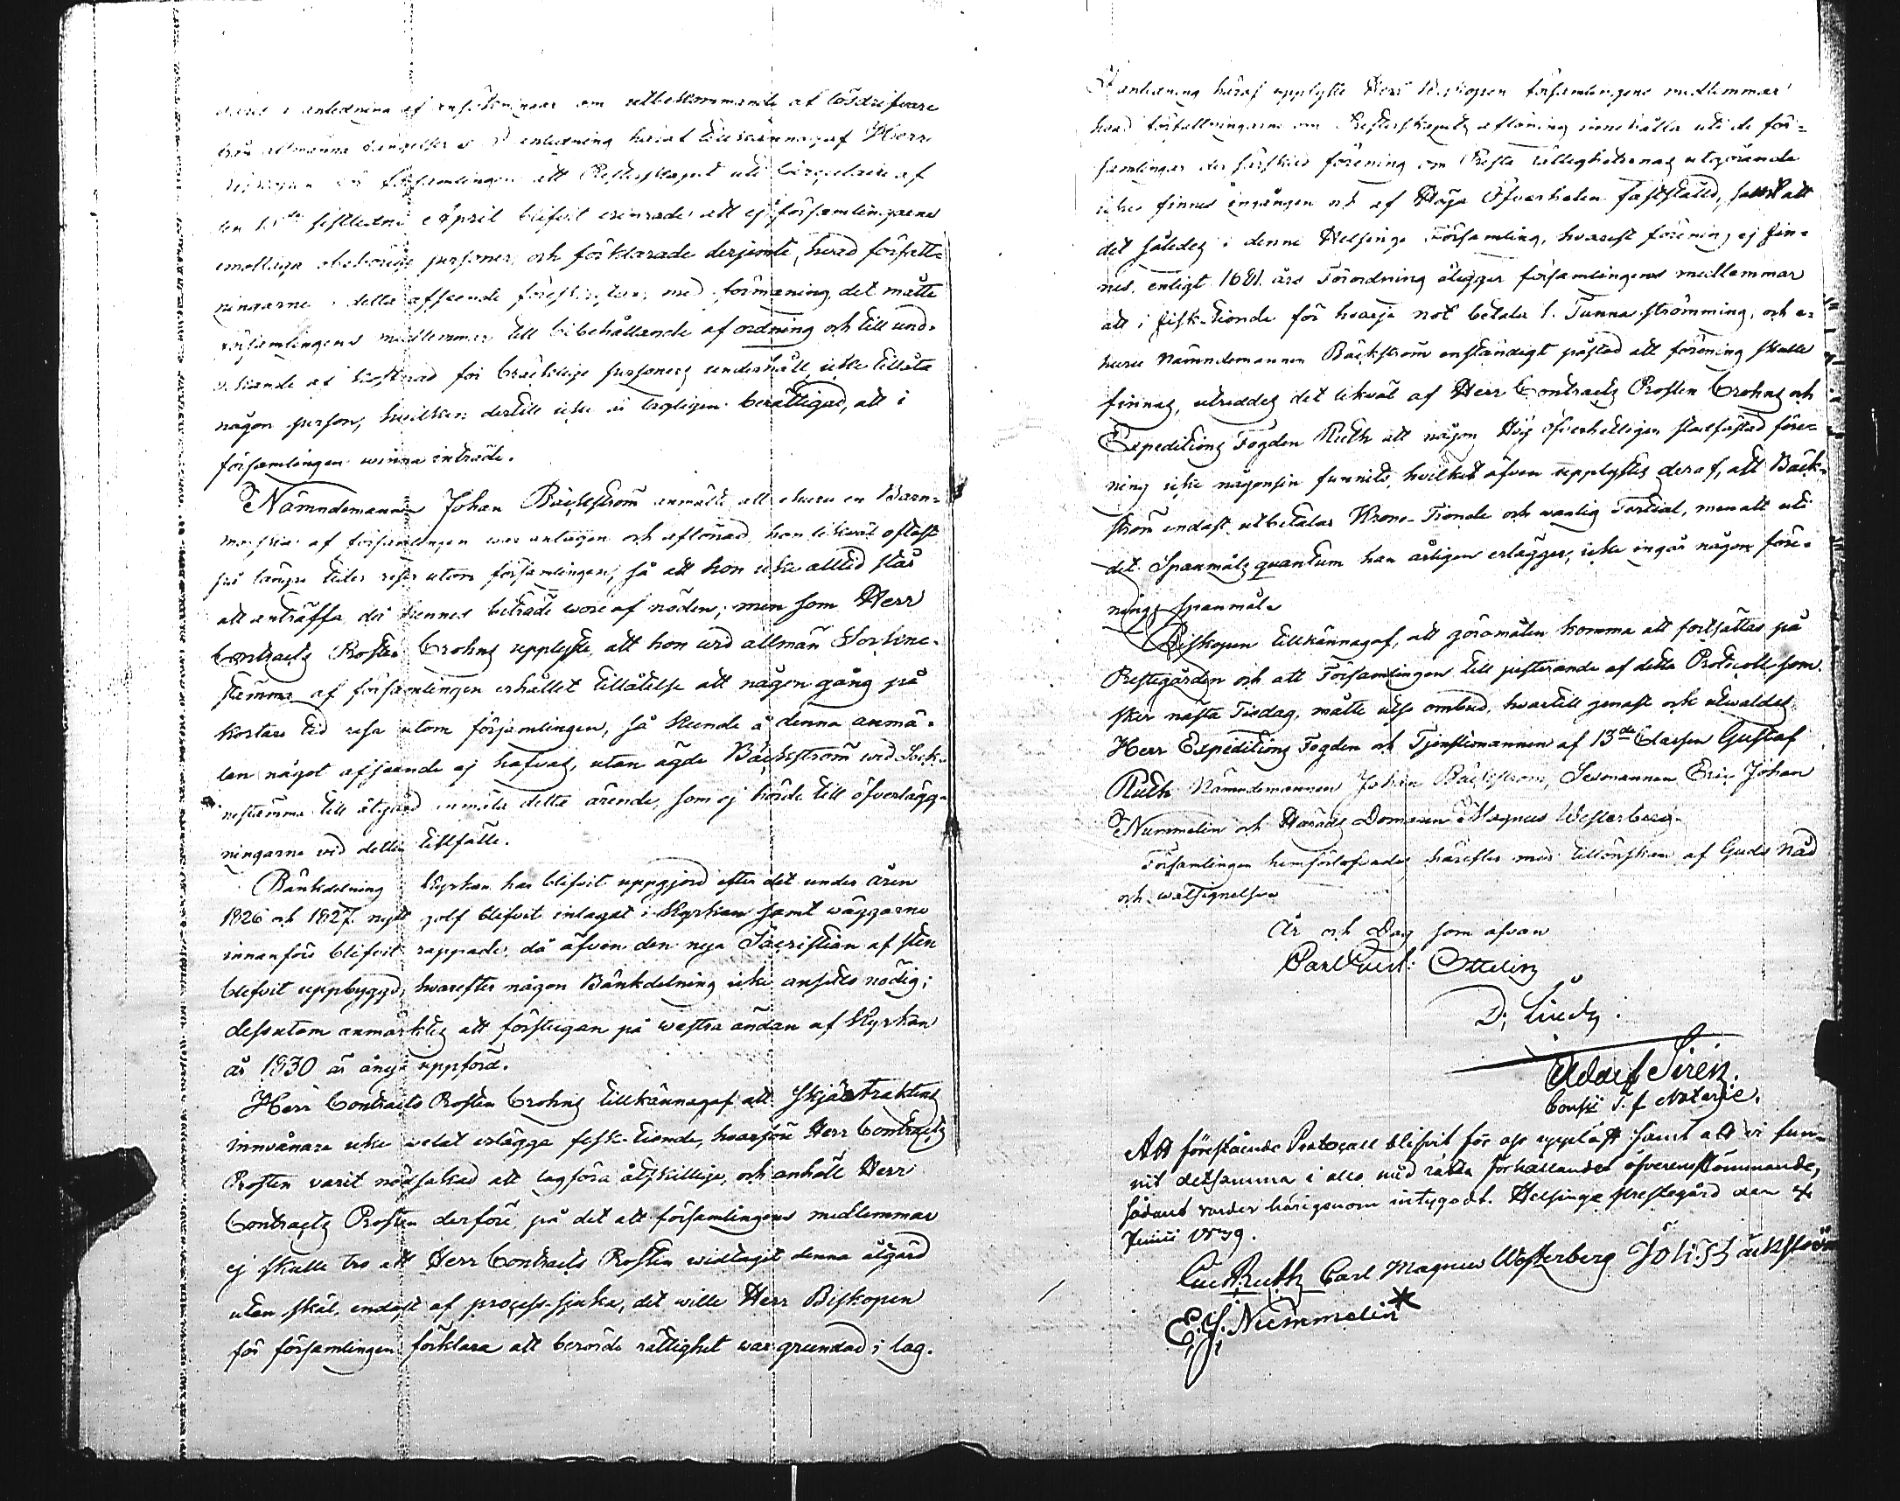 i anledning af ansökningar om utbekommande af lösdrifvare
från allmänna I anledning häraf tillkännagaf Herr
Biskopen för församlingen att Presterskapet uti Circulaire af
den sistledne April blifvit erinrade att ej i församlingarne
emottaga obehörige personer, och förklarade derjemte, hvad författ-
ningarne i detta afseende föreskrifva, med förmaning det måtte
församlingens medlemmar till bibehållande af ordning och till und-
vikande af kostnad för bräcklige personers underhåll icke tillåta
någon person, hvilken dertill icke är lagligen berättigad, att i
församlingen winna inträde.
Nämndemannen Johan Bäckström anmälte att ehuru en Barn-
morska af församlingen war antagen och aflönad, hon likwäl oftast
på längre tider reser utom församlingen, så att hon icke alltid står
att anträffa då hennes biträde wore af nöden; men som Herr
Contracts Prosten Crohns upplyste, att hon wid allmän Sockne-
stämma af församlingen erhållet tillåtelse att någon gång på
kortare tid resa utom församlingen, så kunde å denna anmä-
lan något afseende ej hafvas, utan ägde Bäckström wid Sock-
nestämma till åtgärd anmäla detta ärende, som ej hörde till öfverlägg-
ningarne vid detta tillfälle.
Bänkdelning i Kyrkan har blifvit uppgjord efter det under åren
1826 och 1827 nytt golf blifvit inlagat i Kyrkan samt wäggarne
innanföre blifvit rappade, då äfven den nya Sacristian af sten
blefvit uppbyggd, hwarefter någon Bänkdelning icke ansetts nödig;
dessutom anmärktes att förstugan på westra ändan af Kyrkan
år 1830 är ånyo uppförd.
Herr Contracts Prosten Crohns tillkännagaf att Skjärstraktens
innvånare icke welat erlägga fisk-tionde, hvarföre Herr Contracts
Prosten varit nödsakad att lagföra åtskillige, och anhöll Herr
Contracts Prosten derföre, på det att församlingens medlemmar
ej skulle tro att Herr Contracts Prosten widtagit denna åtgärd
utan skäl, endast af process-sjuka, det wille Herr Biskopen
för församlingen förklara att berörde rättighet war grundad i lag.
I anledning häraf upplyste Herr Biskopen församlingens medlemmar
hvad författningarne om Presterskapets aflöning innehålla uti de för-
samlingar der särskild förening om Preste rättigheternas utgörande
icke finnes ingången och af Höga Öfverheten fastställd, samt att
det således i denna Helsinge Församling, hvarest förening ej fin-
nes, enligt 1681 års Förordning åligger församlingens medlemmar
att i fisk-tionde för hvarje not betala 1. Tunna strömming, och e-
huru Nämndemannen Bäckström enständigt påstod att förening skulle
finnas, utreddes det likväl af Herr Contracts Prosten Crohns och
Expeditions Fogden Ruth att någon Hög öfverhetligen stadfästad före-
ning icke någonsin funnits, hvilket äfven upplystes deraf, att Bäck-
ström endast utbetalar Krono-Tionde och wanlig Tertial, men att uti
det Spanmåls quantum han årligen erlägger, icke ingår någon före-
nings spanmål.
Biskopen tillkännagaf, att göromålen komma att fortsättas på
Prestegården och att Församlingen till justerande af detta Protocoll som
sker nästa Tisdag, måtte utse ombud, hvartill genast ock utwaldes
Herr Expeditions Fogden och Tjenstemannen af 13de Classen Gustaf
Ruth Nämndemannen Johan Bäckström, Sexmannen Eric Johan
Nummelin och Härads Domaren Magnus Westerberg.
Församlingen hemförlofvades härefter med tillönskan af Guds nåd
och wälsignelse.
År och Dag som ofvan
Carl Gust: Ottelin
D, Lindh.
Adolf Sirén.
Consist. T. f. Notarie.
Att förestående Protocoll blifvit för oss uppläst samt att vi fun-
nit detsamma i allo med rätta förhållandet öfverensstämmande,
sådant varder härigenom intygadt. Helsinge prestegård den 4
Junii 1839.
Gust Ruth Carl Magnus Westerberg Joh: Bäckström
E. J. Nummelin